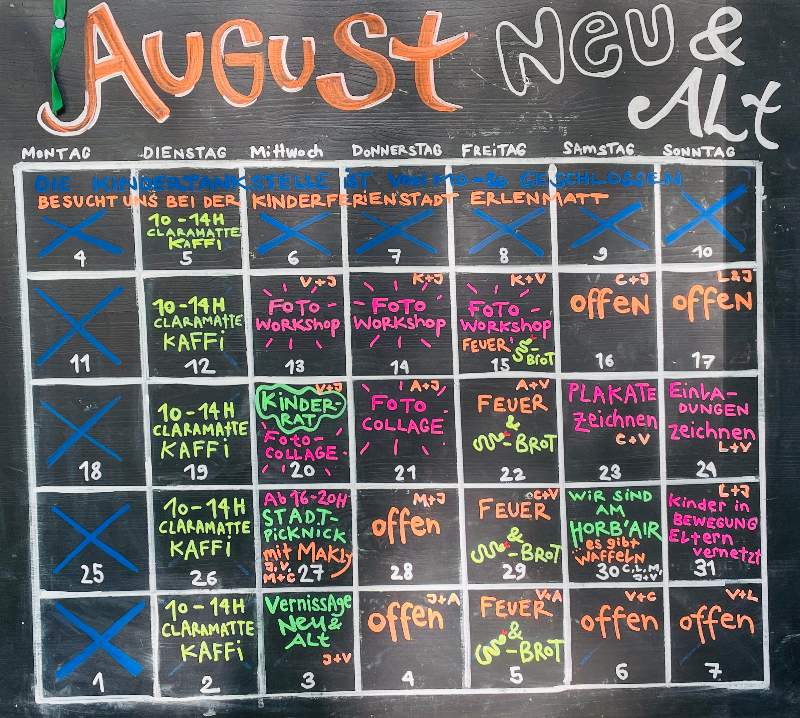 AUGUST NEU &
ALt
MONTAG DIENSTAG MittWoch DONNERSTAG FREITAG SAMSTAG SONNTAG
DIE KINDERTANKSTELLE IST VOM GESCHLOSSEN
BESUCHT UNS BEI DER KINDERFERIENSTADT ERLENMATT
4
10-14H
CLARAMATTE
KAFFi
5
6
7
8
9
10
11
10-14H
CLARAMATTE
KAFFi
12
V+J
FOTO
WORKShop
13
K+J
FOTO
WORKShop
14
K+V
FOTO
WORKShop
FEUER
BROT
15
C+J
OffEN
16
L&J
OffEN
17
18
10-14H
CLARAMATTE
KAFFi
19
V+J
KiNDER-
RAT
Foto-
COLLAGE
20
A+J
FOTO
COLLAGE
21
A+V
FEUER
&
-BROT
22
PLAKATE
Zeichnen
C+V
23
EinLA-
DUNGEN
Zeichnen
L+V
24
25
10-14H
CLARAMATTE
KAFFi
26
Ab 16-20H
STADT-
PicKNiCK
mit MAKLY
J, V,
M+C
27
M+J
offen
28
C+V
FEUER
&
-BROT
29
WiR SiND
AM
HORB'AIR
es gibt
WAFFELN
C, L, M,
J+V
30
L+J
Kinder in
BEWEGUNG
ELtern
vernetzt
31
1
10-14H
CLARAMATTE
KAFFi
2
VernissAge
Neu &
ALt
J+V
3
J+A
offen
4
V+A
FEUER
&
-BROT
5
V+C
offen
6
V+L
offen
7